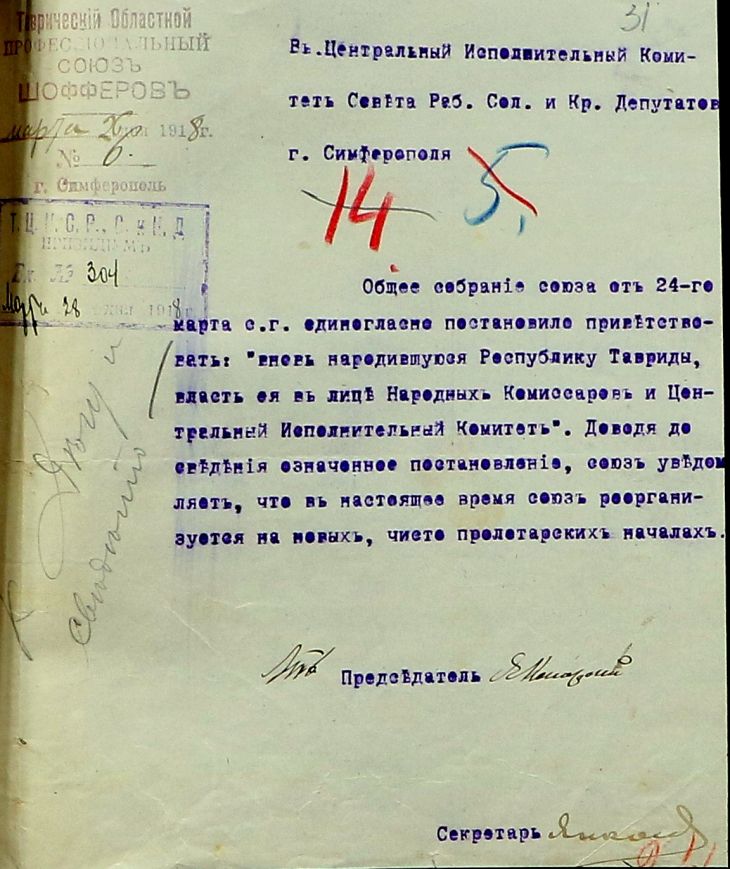 31
Таврическій Областной
ПРОФЕССІОНАЛЬНЫЙ
СОЮЗЪ
ШОФФЕРОВЪ
марта 1918г.
№ 6
г. Симферополь
Т.Ц.И.С.Р., С. и К.Д
ПРЕЗИДІУМЪ
Вх. № 304
Март 28 1918
Въ.Центральный Исполнительный Коми-
тетъ Совѣта Раб. Сол. и Кр. Депутатов
г. Симферополя
14 5,
Общее собраніе союза отъ 24-го
марта с.г. единогласно постановило привѣтство-
вать: "вновь народившуюся Республику Тавриды,
власть ея въ лицѣ Народныхъ Комиссаровъ и Цен-
тральный Исполнительный Комитетъ". Доводя до
свѣдѣнія означенное постановленіе, союзъ увѣдом
ляетъ, что въ настоящее время союзъ реоргани-
зуется на новыхъ, чисто пролетарскихъ началахъ.
К Делу и
Предсѣдатель
Секретарь